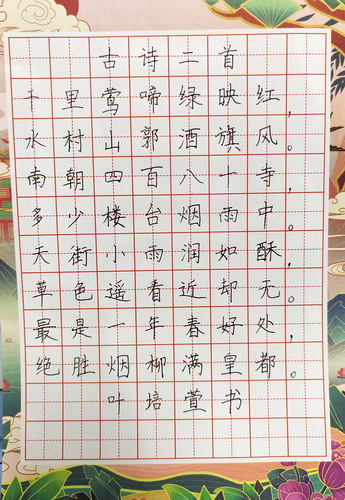 古诗二首
千里莺啼绿映红，
水村山郭酒旗风。
南朝四百八十寺，
多少楼台烟雨中。
天街小雨润如酥，
草色遥看近却无。
最是一年春好处，
绝胜烟柳满皇都。
叶培萱书